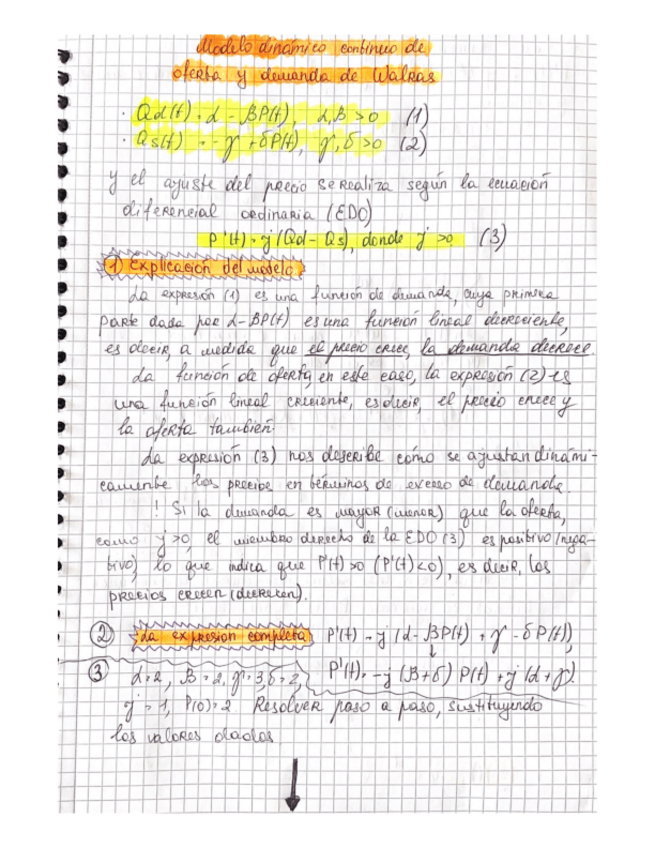 Modelo dinámico continuo de
oferta y demanda de Walras
· Qd(t) = α - βP(t), α,β > 0 (1)
· Qs(t) = -γ + δP(t), γ,δ > 0 (2)
y el ajuste del precio se realiza según la ecuación
diferencial ordinaria (EDO)
P'(t) = j (Qd - Qs), donde j > 0 (3)
① Explicación del modelo
La expresión (1) es una función de demanda, cuya primera
parte dada por α - βP(t) es una función lineal decreciente,
es decir, a medida que el precio crece, la demanda decrece.
La función de oferta, en este caso, la expresión (2) es
una función lineal creciente, es decir, el precio crece y
la oferta también.
La expresión (3) nos describe cómo se ajustan dinámi-
camente los precios en términos de exceso de demanda.
! Si la demanda es mayor (menor) que la oferta,
como j>0, el miembro derecho de la EDO (3) es positivo (nega-
tivo) lo que indica que P'(t) >0 (P'(t) <0), es decir, los
precios crecen (decrecen).
② La expresión completa P'(t) = j (α - βP(t) + γ - δP(t)),
↓
③ α=2, β=2, γ=3, δ=2, P'(t) = -j (β+δ) P(t) + j (α+γ).
j = 1, P(0)=2 Resolver paso a paso, sustituyendo
los valores dados
↓